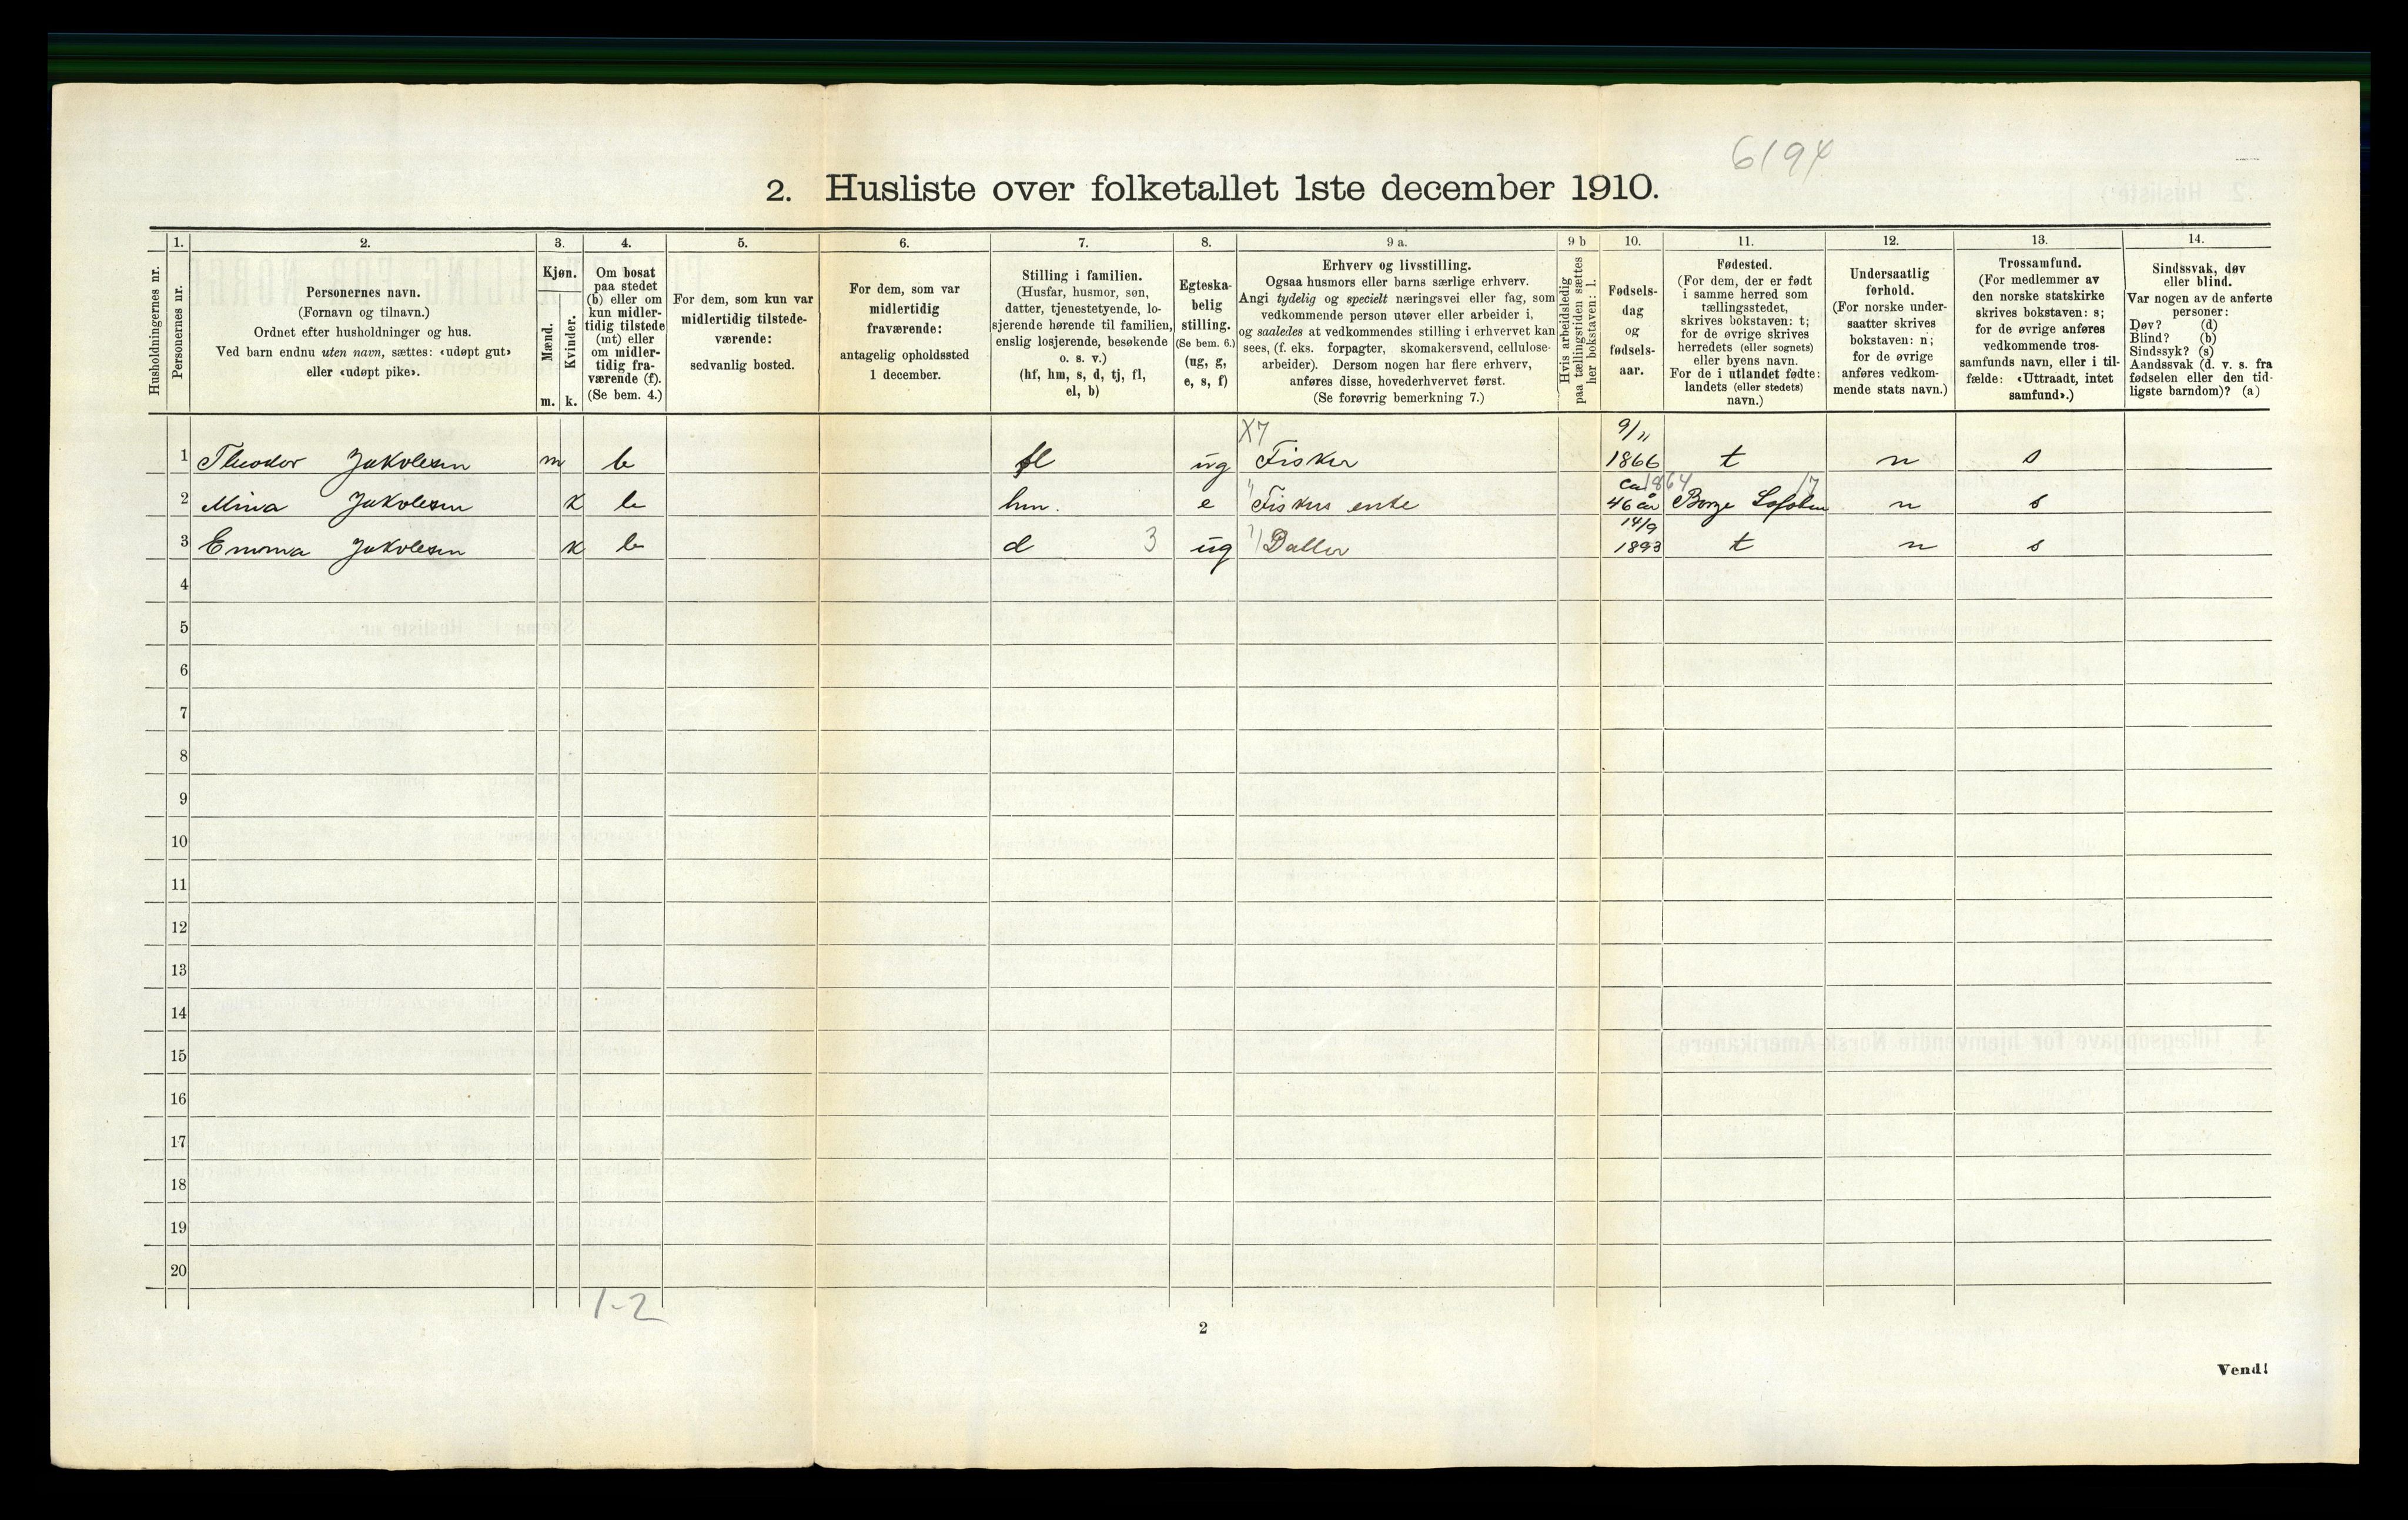 6194
2. Husliste over folketallet 1ste december 1910.
Husholdningernes nr.
1. Personernes nr.
2. Personernes navn.
(Fornavn og tilnavn.)
Ordnet efter husholdninger og hus.
Ved barn endnu uten navn, sættes: «udøpt gut»
eller «udøpt pike».
3. Kjøn.
Mænd. m.
Kvinder. k.
4. Om bosat
paa stedet
(b) eller om
kun midler-
tidig tilstede
(mt) eller
om midler-
tidig fra-
værende (f).
(Se bem. 4.)
5. For dem, som kun var
midlertidig tilstede-
værende:
sedvanlig bosted.
6. For dem, som var
midlertidig
fraværende:
antagelig opholdssted
1 december.
7. Stilling i familien.
(Husfar, husmor, søn,
datter, tjenestetyende, lo-
sjerende hørende til familien,
enslig losjerende, besøkende
o. s. v.)
(hf, hm, s, d, tj, fl,
el, b)
8. Egteska-
belig
stilling.
(Se bem. 6.)
(ug, g,
e, s, f)
9 a. Erhverv og livsstilling.
Ogsaa husmors eller barns særlige erhverv.
Angi tydelig og specielt næringsvei eller fag, som
vedkommende person utøver eller arbeider i,
og saaledes at vedkommendes stilling i erhvervet kan
sees, (f. eks. forpagter, skomakersvend, cellulose-
arbeider). Dersom nogen har flere erhverv,
anføres disse, hovederhvervet først.
(Se forøvrig bemerkning 7.)
9 b Hvis arbeidsledig
paa tællingstiden sættes
her bokstaven: l.
10. Fødsels-
dag
og
fødsels-
aar.
11. Fødested.
(For dem, der er født
i samme herred som
tællingsstedet,
skrives bokstaven: t;
for de øvrige skrives
herredets (eller sognets)
eller byens navn.
For de i utlandet fødte:
landets (eller stedets)
navn.)
12. Undersaatlig
forhold.
(For norske under-
saatter skrives
bokstaven: n;
for de øvrige
anføres vedkom-
mende stats navn.)
13. Trossamfund.
(For medlemmer av
den norske statskirke
skrives bokstaven: s;
for de øvrige anføres
vedkommende tros-
samfunds navn, eller i til-
fælde: «Uttraadt, intet
samfund».)
14. Sindssvak, døv
eller blind.
Var nogen av de anførte
personer:
Døv? (d)
Blind? (b)
Sindssyk? (s)
Aandssvak (d. v. s. fra
fødselen eller den tid-
ligste barndom)? (a)
X7 9/11
1 Theodor Jakobsen m b fl ug Fisker 1866 t n s
ca 1864 17
2 Mina Jakobsen k b hm. e Fiskers enke 46 år Borge Lofoten n s
14/9
3 Emma Jakobsen k b d 3 ug Datter 1893 t n s
4
5
6
7
8
9
10
11
12
13
14
15
16
17
18
19
20
1-2
2
Vend!